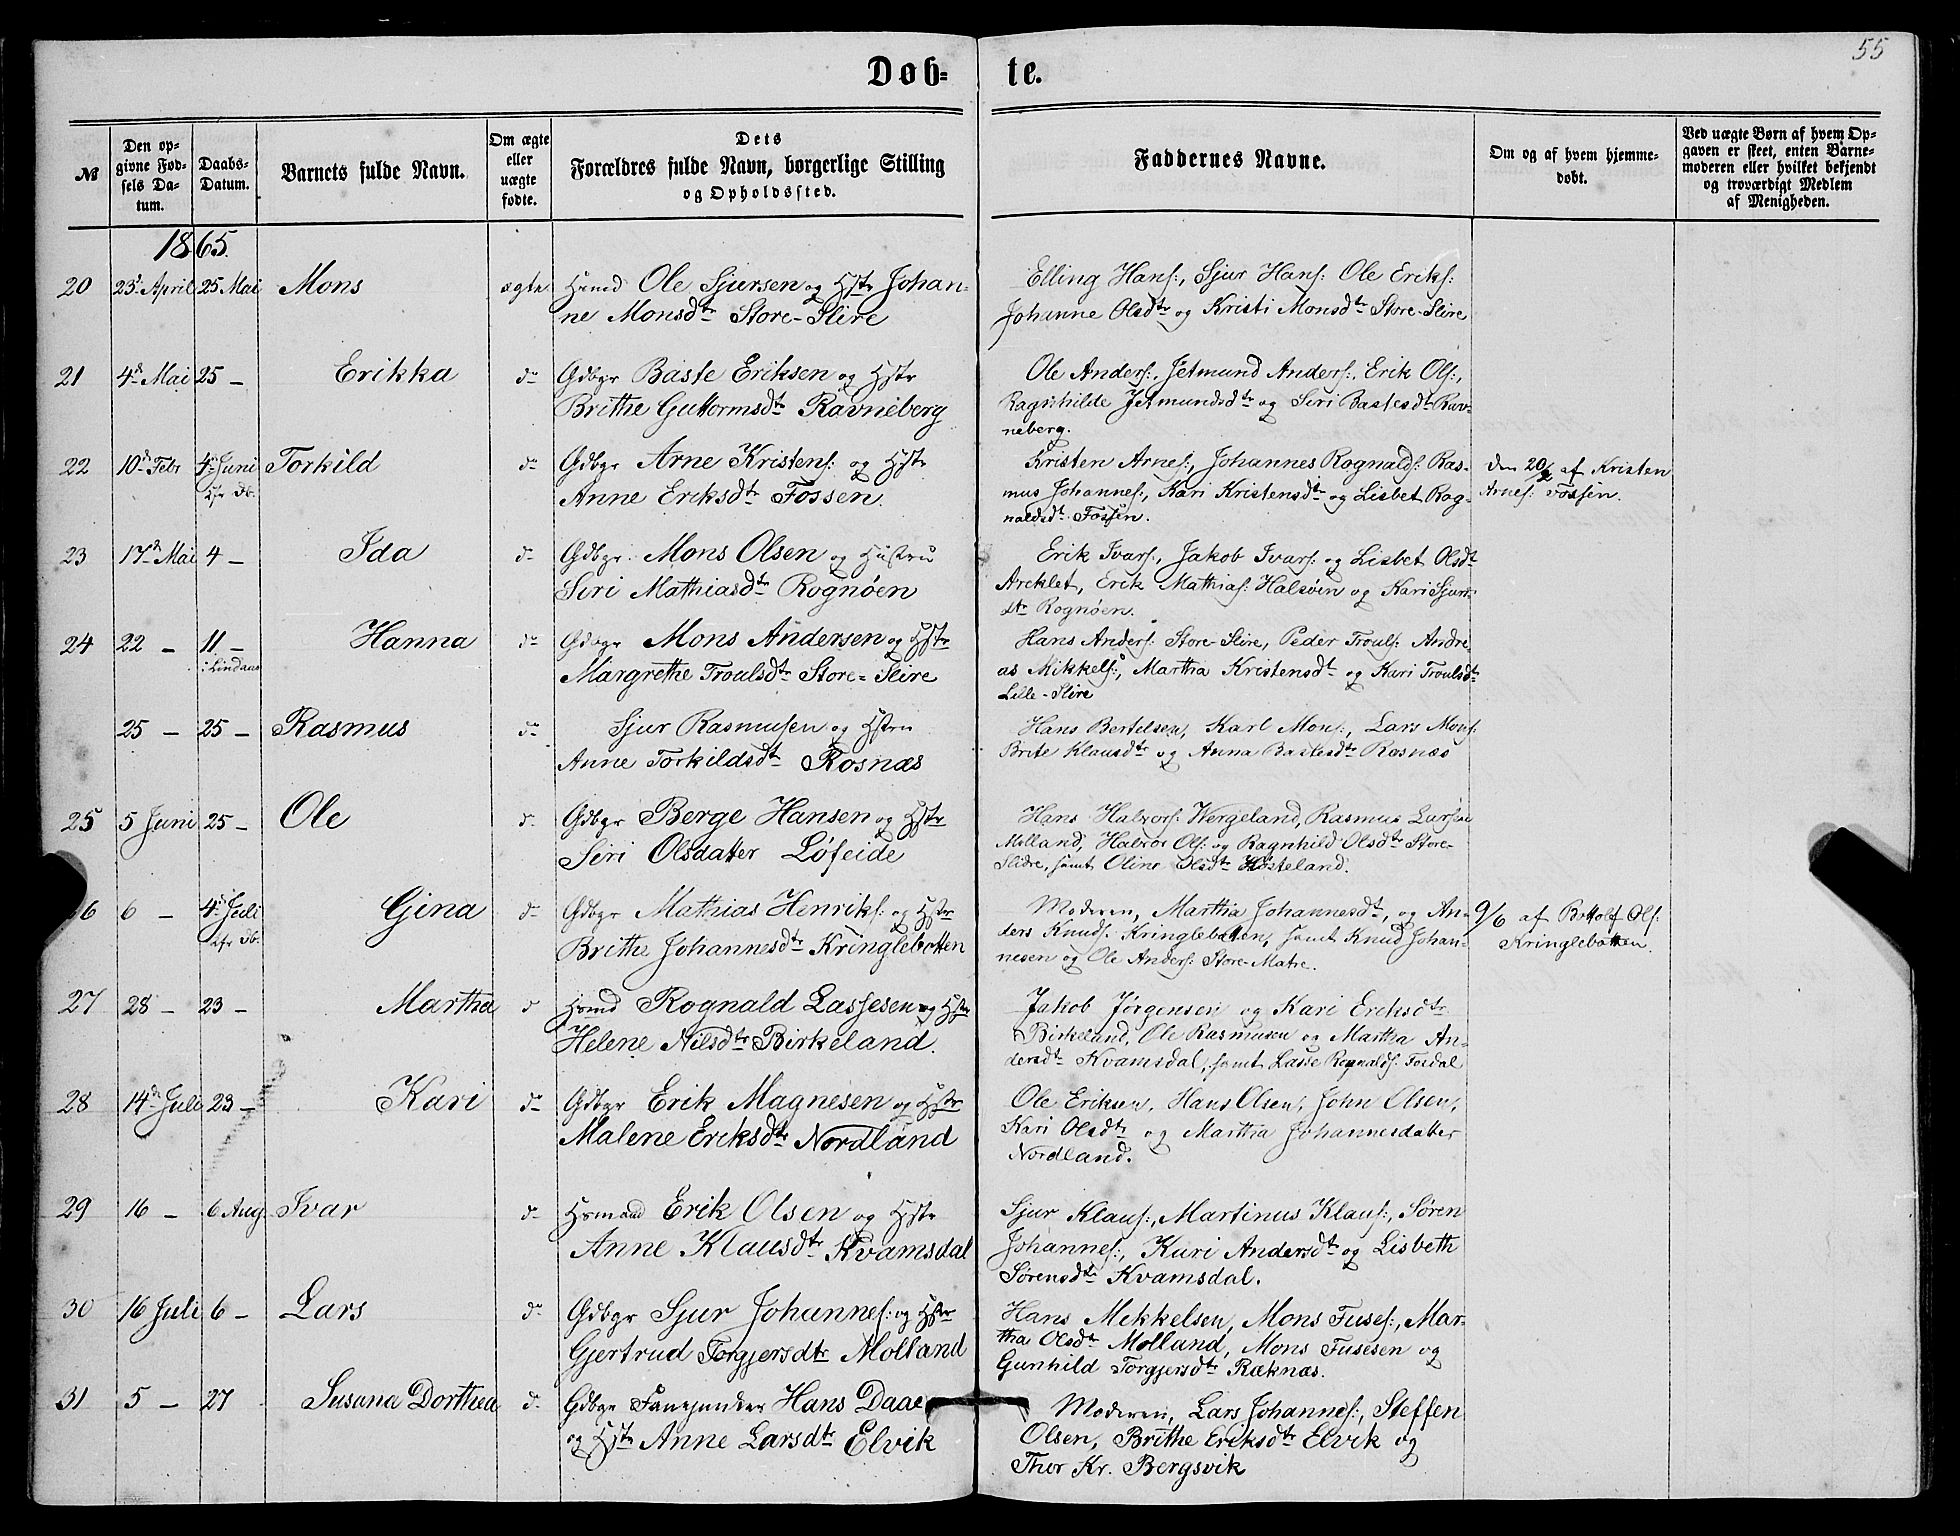 55
Døb-
te.
№
Den op-
givne Fød-
sels Da-
tum.
Daabs-
Datum.
Barnets fulde Navn.
Om ægte
eller
uægte
fødte.
Dets
Forældres fulde Navn, borgerlige Stilling
og Opholdssted.
Faddernes Navne.
Om og af hvem hjemme-
døbt.
Ved uægte Børn af hvem Op-
gaven er skeet, enten Barne-
moderen eller hvilket bekjendt
og troværdigt Medlem
af Menigheden.
1865.
20 23d April 25 Mai Mons ægte Hsmd Ole Sjursen og Hstr Johan-
ne Monsdtr Store-Slire
Elling Hans:, Sjur Hans: Ole Eriks:
Johanne Olsdtr og Kristi Monsdtr Store-Slire
21 4d Mai 25 – Erikka do Gdbgr Baste Eriksen og Hstr
Brithe Guttormsdtr Ravneberg
Ole Anders:, Jetmund Anders:, Erik Ols:,
Ragnhilde Jetmundsdtr og Siri Bastesdtr Rav-
neberg.
22 10d Febr 4d Juni Torkild do Gdbgr Arne Kristens: og Hstr
Kfr Db.
Anne Eriksdtr Fossen.
Kristen Arnes:, Johannes Rognalds: Ras-
mus Johannes:, Kari Kristensdtr og Lisbet Rog-
naldsdtr Fossen.
den 20/2 af Kristen
Arnes: Fossen.
23 17d Mai 4 – Ida do Gdbgr. Mons Olsen og Hustru
Siri Mathiasdtr Rognøen
Erik Ivars:, Jakob Ivars: og Lisbet Olsdtr
Areklet, Erik Mathias: Halsøen og Kari Sjurs
dtr Rognøen.
24 22 – 11 – Hanna do Gdbgr Mons Andersen og Hstr
i Lindaas
Margrethe Troulsdtr Store-Slire
Hans Anders: Store-Slire, Peder Trouls: Andre
as Mikkels:, Martha Kristensdtr og Kari Troulsdtr
Lille-Slire
25 – 25 – Rasmus do Sjur Rasmusen og Hstru
Anne Torkildsdtr Rosnæs
Hans Bertelsen, Karl Mons:, Lars Mons:
Brite Klausdtr og Anna Bastesdtr Rosnæs
25 5 Juni 25 – Ole d. Gdbgr Berge Hansen og Hstr
Siri Olsdatter Løfeide
Hans Halvors: Wergeland, Rasmus Larsen
Molland, Halvor Ols: og Ragnhild Olsdtr Store-
Slidre, samt Oline Olsdtr Høsteland.
26 6 – 4d Juli Gina do Gdbgr Mathias Henriks: og Hstr
Kfr Db.
Brithe Johannesdtr Kringlebotten
Moderen, Martha Johannesdtr, og An-
ders Knuds: Kringlebotten, samt Knud Johan-
nesen og Ole Anders: Store-Matre.
9/6 af Bottolf Ols:
Kringlebotten.
27 28 – 23 – Martha d Hsmd Rognald Lassesen og Hstr
Helene Nilsdtr Birkeland.
Jakob Jørgensen og Kari Eriksdtr
Birkeland, Ole Rasmusen og Martha An-
dersdtr Kvamsdal, samt Lasse Rognalds: Fosdal
28 14d Juli 23 – Kari do Gdbgr Erik Magnesen og Hstr
Malene Eriksdtr Nordland
Ole Eriksen, Hans Olsen, John Olsen,
Kari Olsdtr og Martha Johannesdatter
Nordland.
29 16 – 6 Aug. Ivar do Hsmand Erik Olsen og Hstr
Anne Klausdtr Kvamsdal
Sjur Klaus:, Martinus Klaus:, Søren
Johannes:, Kari Andersdtr og Lisbeth
Sørensdtr Kvamsdal.
30 16 Juli 6 – Lars do Gdbgr Sjur Johannes: og Hstr
Gjertrud Torgjersdtr Molland
Hans Mikkelsen, Mons Fuses:, Mar-
tha Olsdtr Molland, Mons Fusesen og
Gunhild Torgjersdtr Ræknæs.
31 5 – 27 Susana Dorthea do Gdbgr Fanejunker Hans Daae
og Hstr Anne Larsdtr Elvik
Moderen, Lars Johannes:, Steffen
Olsen, Brithe Eriksdtr Elvik og
Thor Kr. Bergsvik